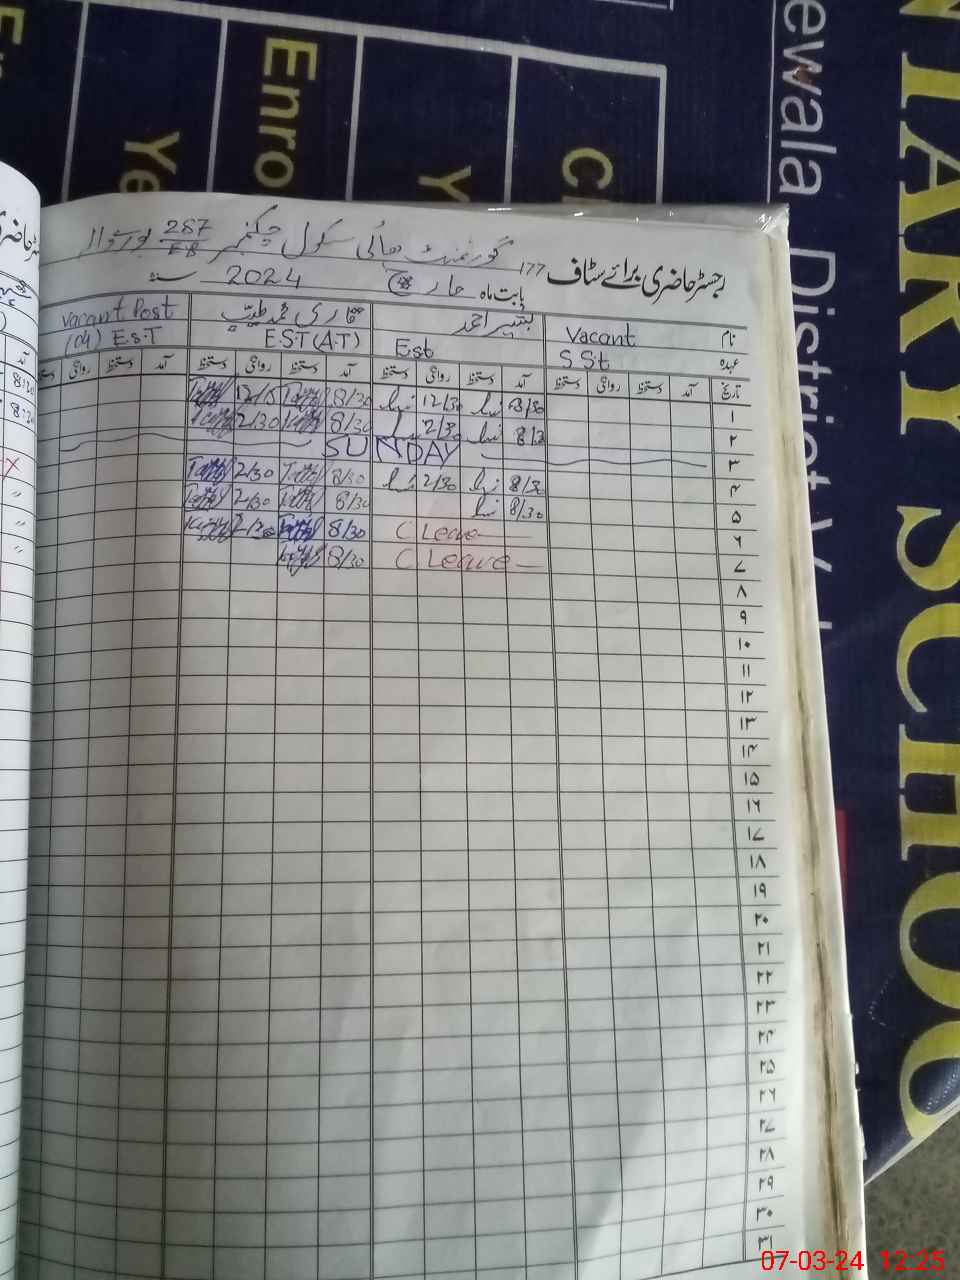 NTARY SCHOO
ewala District V
Enro
Ye
Y
C
رجسٹر حاضری برائے سٹاف 177 گورنمنٹ ہائی سکول چکنمبر 287/EB بورےوالا
بابت ماہ مارچ 2024 سنہ
نام Vacant بشیر احمد قاری محمد طیب Vacant Post
عہدہ S St Est E.S.T (A.T) (04) E.S.T
تاریخ آمد دستخط روانگی دستخط آمد دستخط روانگی دستخط آمد دستخط روانگی دستخط آمد دستخط روانگی دستخط
۱ 8/30 12/30 8/30 12/15
۲ 8/30 2/30 8/30 2/30
۳ SUNDAY
۴ 8/30 2/30 8/30 2/30
۵ 8/30 8/30 2/30
۶ C Leave 8/30 2/30
۷ C Leave 8/30
۸
۹
۱۰
۱۱
۱۲
۱۳
۱۴
۱۵
۱۶
۱۷
۱۸
۱۹
۲۰
۲۱
۲۲
۲۳
۲۴
۲۵
۲۶
۲۷
۲۸
۲۹
۳۰
۳۱
07-03-24 12:25